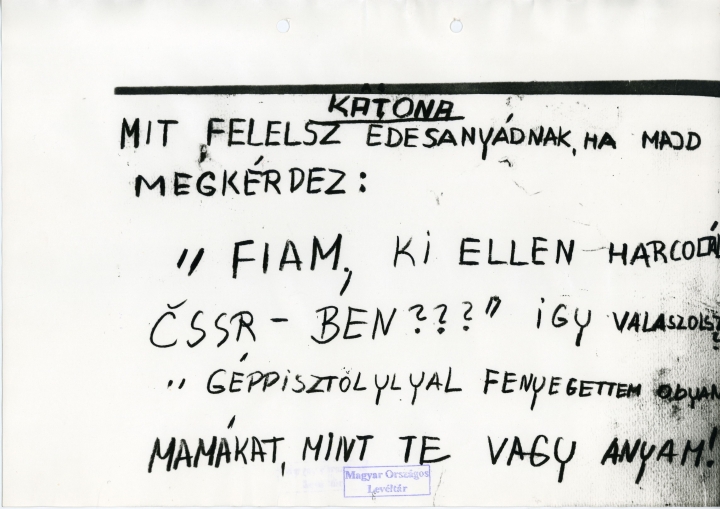 KATONA
MIT FELELSZ EDESANYÁDNAK, HA MAJD
MEGKÉRDEZ:
„FIAM, Ki ELLEN HARCOLTÁL
ČSSR-BEN???" iGY VÁLASZOLSZ?
„GÉPPISZTOLYLYAL FENYEGETTEM OLYAN
MAMÁKAT, MINT TE VAGY ANYÁM!
Magyar Országos
Levéltár